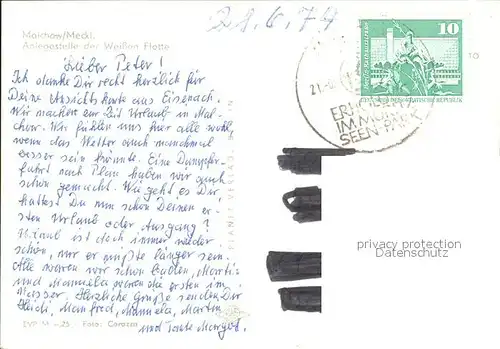 21.6.74
Malchow/Meckl.
Anlegestelle der Weißen Flotte
Lieber Peter!
Ich danke Dir recht herzlich für
Deine Ansichtskarte aus Eisenach.
Wir machen zur Zeit Urlaub in Mal-
chow. Wir fühlen uns hier alle wohl,
wenn das Wetter auch manchmal
besser sein könnte. Eine Dampfer-
fahrt nach Plau haben wir auch
schon gemacht. Wie geht es Dir,
hattest Du nun schon Deinen er-
sten Urlaub oder Ausgang?
Urlaub ist doch immer wieder
schön, nur er müßte länger sein.
Alle waren wir schon baden, Martin
und Manuela waren die ersten im
Wasser. Herzliche Grüße senden Dir
Heidi, Manfred, Manuela, Martin
und Tante Margot.
Foto:
PLANET-VERLAG
10
DEUTSCHE DEMOKRATISCHE REPUBLIK
21.
IM
SEEN-PARK
10
privacy protection
Datenschutz